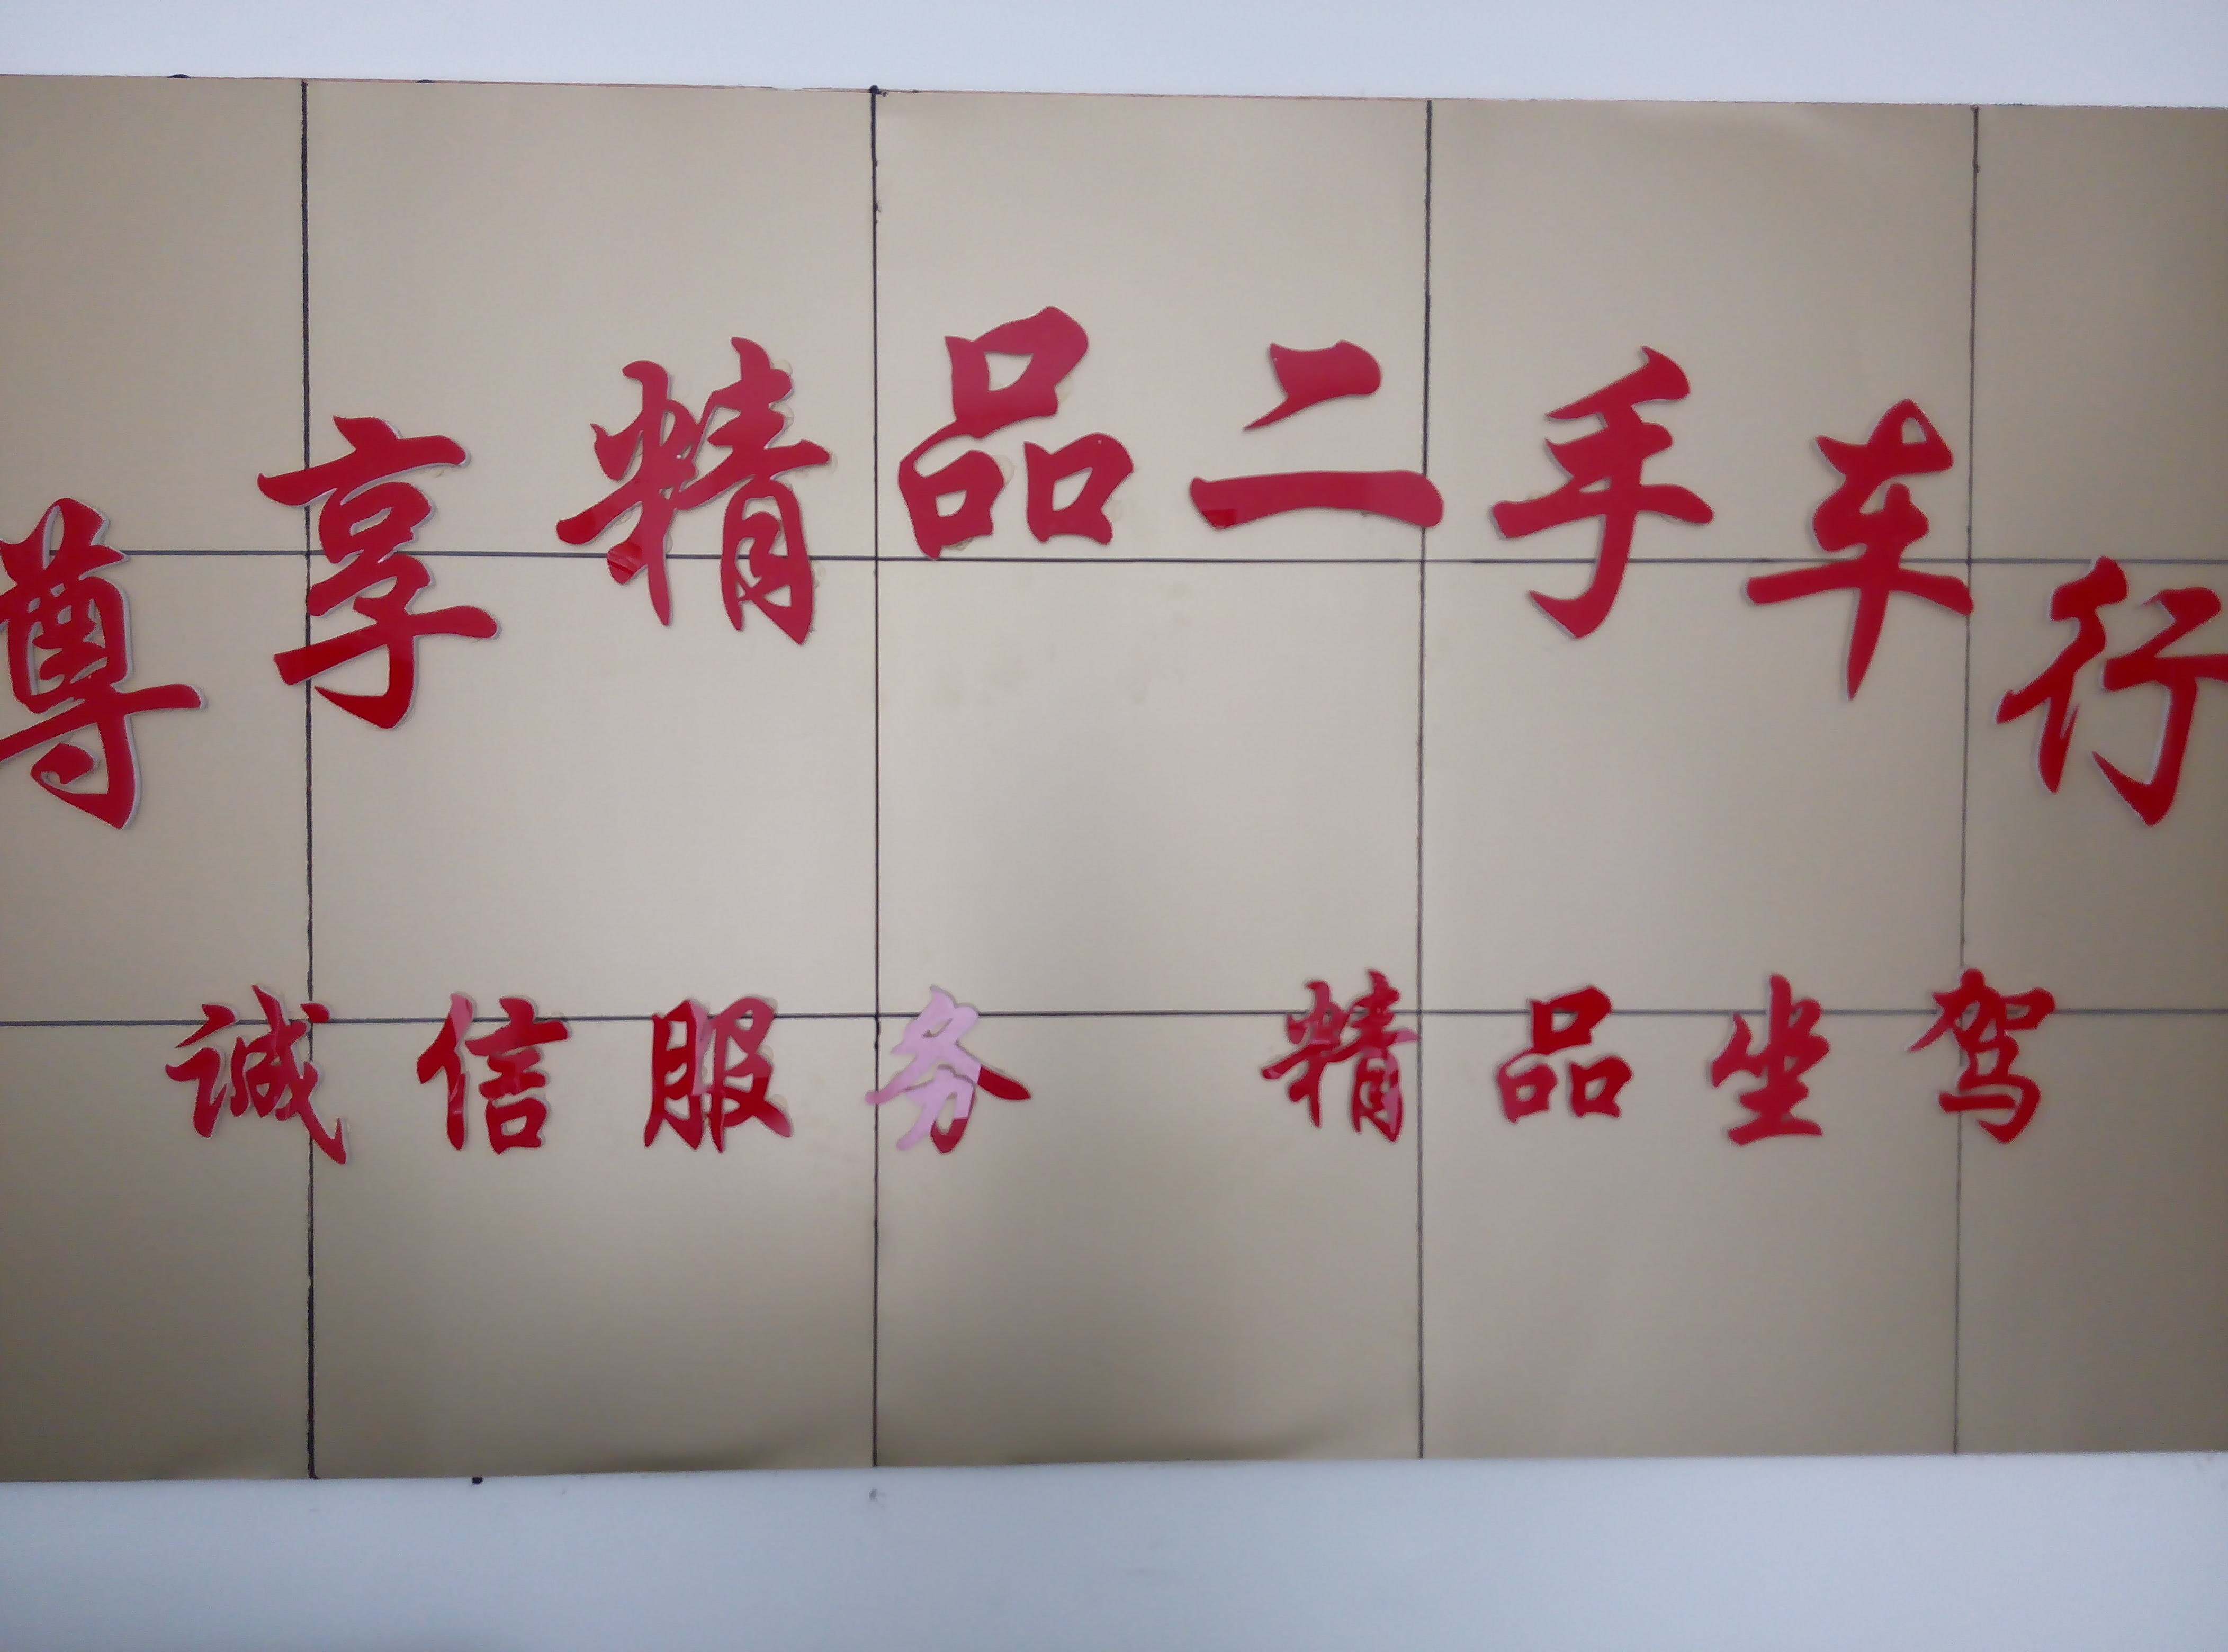 尊享精品二手车行
诚信服务 精品坐驾